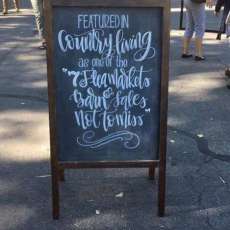 FEATURED IN
Country Living
as one of the
"7 Flea Markets
& Barn Sales
not to miss"